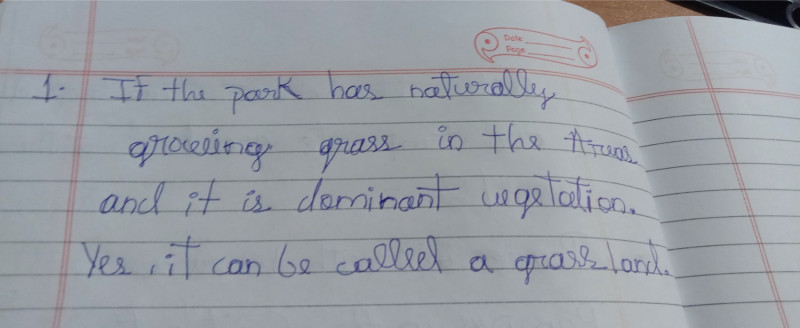 Date
Page
1. If the park has naturally
growing grass in the Areas
and it is dominant vegetation.
Yes, it can be called a grassland.